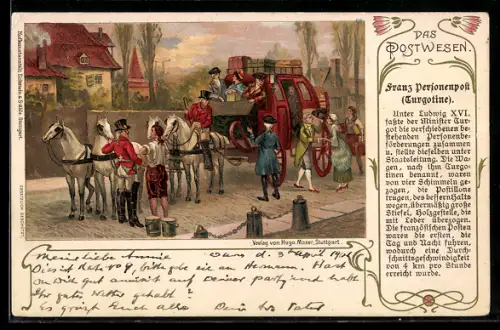 DAS
POSTWESEN.
Franz Personenpost
(Turgotine).
Unter Ludwig XVI.
faßte der Minister Tur-
got die verschiedenen be-
stehenden Personenbe-
förderungen zusammen
u. stellte dieselben unter
Staatsleitung. Die Wa-
gen, nach ihm Turgo-
tinen benannt, waren
von vier Schimmeln ge-
zogen, die Postillone
trugen, des bessern Halts
wegen, übermäßig große
Stiefel, Holzgestelle, die
mit Leder überzogen.
Die französischen Posten
waren die ersten, die
Tag und Nacht fuhren,
wodurch eine Durch-
schnittsgeschwindigkeit
von 4 km pro Stunde
erreicht wurde.
Verlag von Hugo Moser, Stuttgart.
Meine liebe Annie
d. 3 April
Dies ist Karte No 4, bitte gib sie an Hermann. Hast
Du Dich gut amüsirt auf Deiner party und habt
Ihr gutes Wetter gehabt?
Es grüsst Euch alle Dein tr. Vater